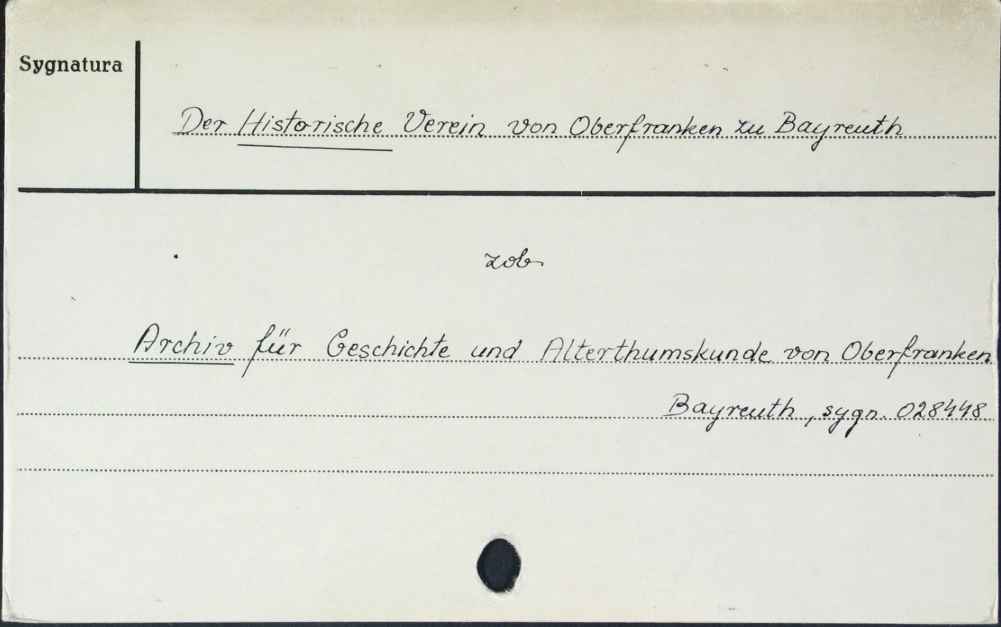 Sygnatura
Der Historische Verein von Oberfranken zu Bayreuth
zob
Archiv für Geschichte und Alterthumskunde von Oberfranken
Bayreuth, sygn. 028448